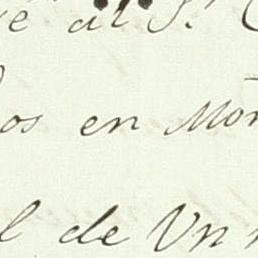 al S.r
os en Mon
l de Un